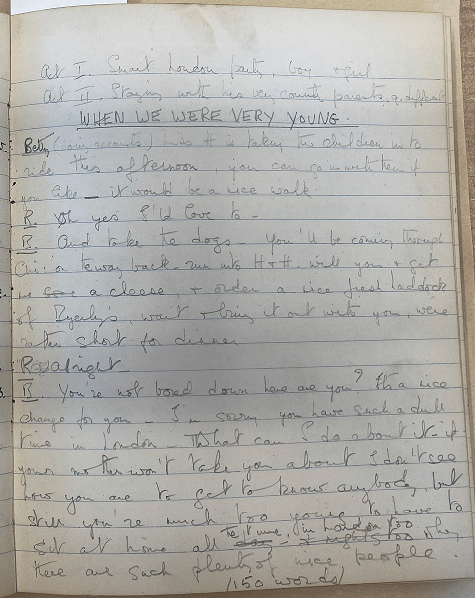 Act I. Smart London party, boy + girl
Act II. Staying with his very country parents, q. different
WHEN WE WERE VERY YOUNG.
Betty (doing accounts) Miss H is taking the children out to
ride this afternoon, you can go with them if
you like – it would be a nice walk
R. Oh yes I'd love to –
B. And take the dogs – You'll be coming through
on the way back – run into H + H. will you + get
me a cheese, + order a nice fresh haddock
of Byerleys, wait + bring it out with you, we're
rather short for dinner
R. alright
B. You're not bored down here are you? It's a nice
change for you – I'm sorry you have such a dull
time in London – What can I do about it – if
your mother won't take you about I don't see
how you are to get to know anybody, but
still you're much too young to have to
sit at home all the time, in London too why
there are such plenty of nice people.
1150 words